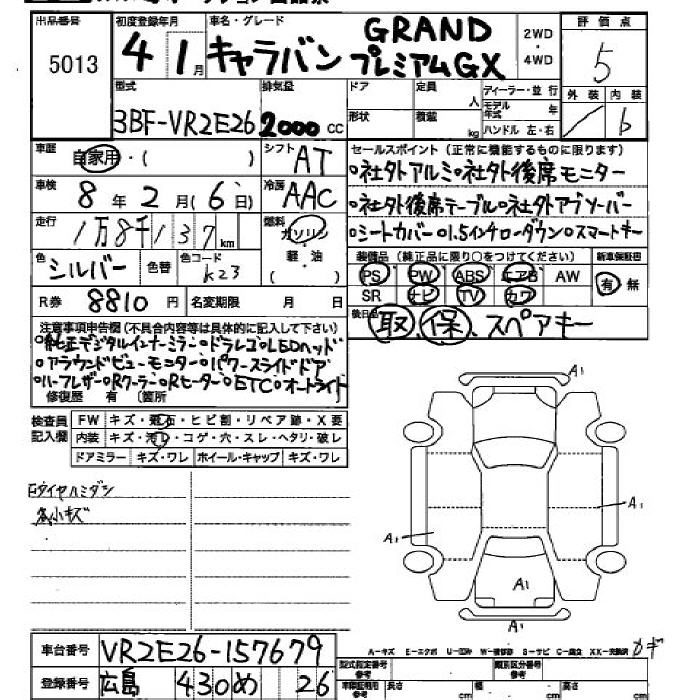 出品番号 初度登録年月 車名・グレード 評価点
5013 4 1月 キャラバン GRAND プレミアムGX 2WD・4WD 5
外装 内装
／ b
型式 排気量 ドア 定員 人 ディーラー・並行
3BF-VR2E26 2000cc 形状 積載 kg モデル年式 年
ハンドル 左・右
車歴 自家用・( ) シフト AT セールスポイント(正常に機能するものに限ります)
車検 8年2月(6日) 冷房 AAC
○社外アルミ○社外後席モニター
○社外後席テーブル○社外アブソーバー
○シートカバー○1.5インチローダウン○スマートキー
走行 1万8千137km 燃料 ガソリン 軽油 ( )
色 シルバー 色替 色コード K23
装備品(純正品に限り○をつけてください) 新車保証書
PS PW ABS エアB AW 有 無
SR ナビ TV カワ
R券 8810円 名変期限 月 日
後日品 取、保、スペアキー
注意事項申告欄(不具合内容等は具体的に記入して下さい)
○純正デジタルインナーミラー○ドラレコ○LEDヘッド
○アラウンドビューモニター○パワースライドドア
○ハーフレザー○Rクーラー○Rヒーター○ETC○オートライト
修復歴 有 〔箇所
検査員記入欄 FW キズ・飛石・ヒビ割・リペア跡・X要
内装 キズ・汚れ・コゲ・穴・スレ・ヘタリ・破レ
ドアミラー キズ・ワレ ホイール・キャップ キズ・ワレ
A1
Fタイヤハミダシ
各小キズ
A1
A1
A1
A1
A-キズ E-エクボ U-凹み W-補修跡 S-サビ C-腐食 XX-交換済 カギ
車台番号 VR2E26-157679
登録番号 広島 430 め 26
型式指定番号 参考 類別区分番号 参考
車検証利用 参考 長さ cm 幅 cm 高さ cm